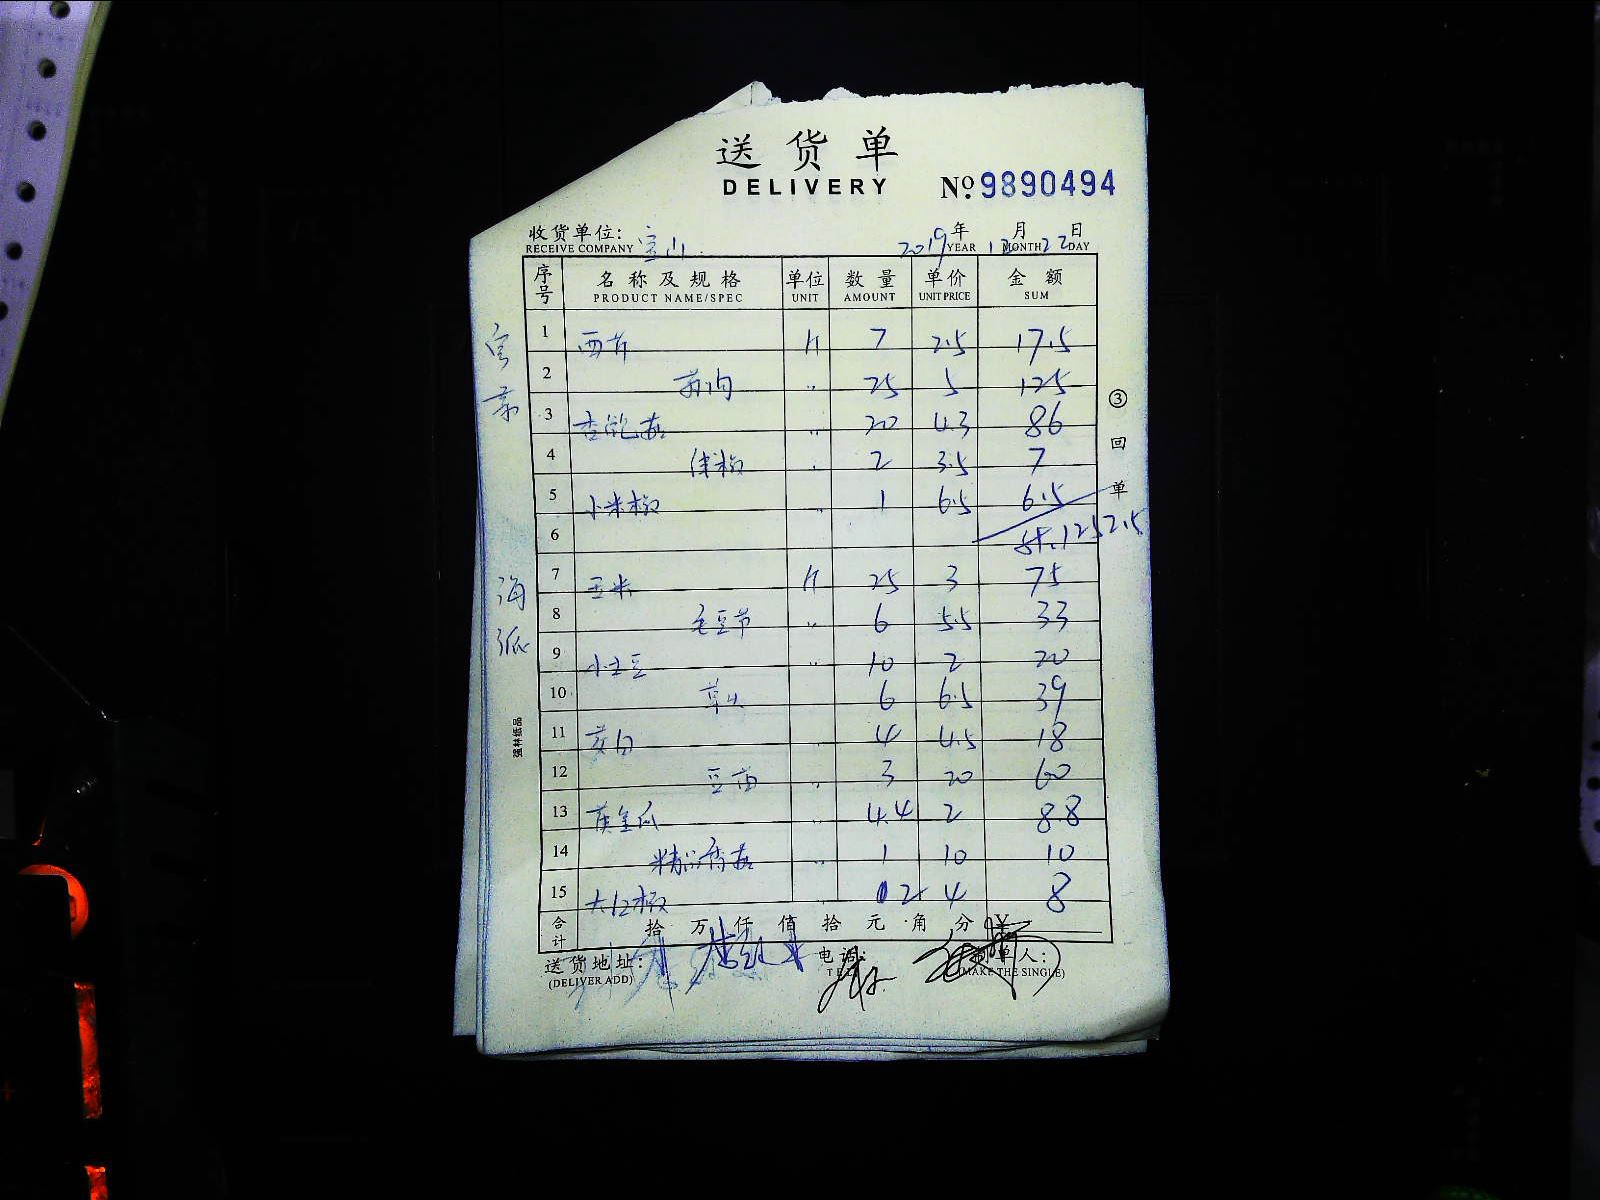 送货单
DELIVERY
No. 9890494
收货单位: 宝山
RECEIVE COMPANY
2019年12月22日
YEAR MONTH DAY
序号 名称及规格 单位 数量 单价 金额
PRODUCT NAME/SPEC UNIT AMOUNT UNIT PRICE SUM
1 西芹 斤 7 2.5 17.5
2 〃 25 5 125
3 杏鲍菇 〃 20 4.3 86
4 〃 2 3.5 7
5 小米椒 〃 1 6.5 6.5
6 1252.5
7 玉米 斤 25 3 75
8 毛豆节 〃 6 5.5 33
9 小土豆 〃 10 2 20
10 草头 6 6.5 39
11 茭白 〃 4 4.5 18
12 豆苗 〃 3 20 60
13 黄金瓜 〃 4.4 2 8.8
14 精品香菇 〃 1 10 10
15 大红椒 2 4 8
合计 拾 万 仟 佰 拾 元 角 分 ¥
送货地址:
(DELIVER ADD)
电话:
TEL
单人:
(MAKE THE SINGLE)
③回单
海
强林纸品